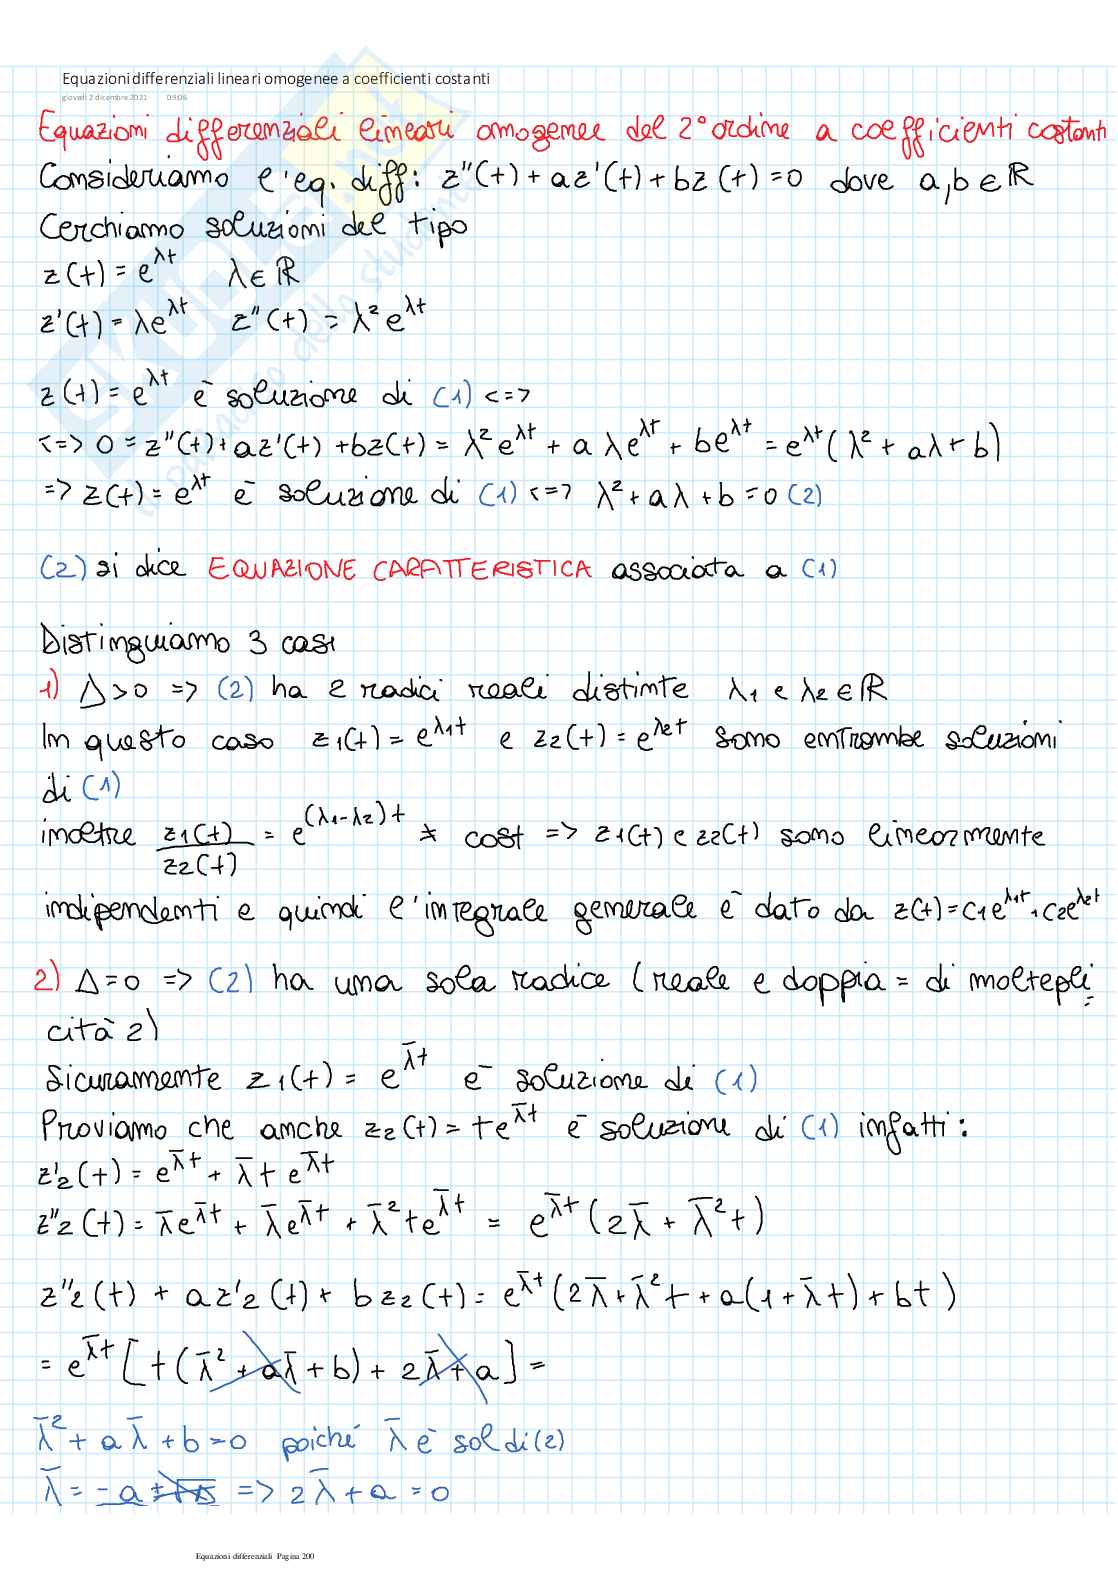 Equazioni differenziali lineari omogenee a coefficienti costanti
giovedì 2 dicembre 2021 09:06
Equazioni differenziali lineari omogenee del 2° ordine a coefficienti costanti
Consideriamo l'eq. diff: z''(t) + az'(t) + bz(t) = 0 dove a,b ∈ ℝ
Cerchiamo soluzioni del tipo
z(t) = e^{λt} λ ∈ ℝ
z'(t) = λe^{λt} z''(t) = λ² e^{λt}
z(t) = e^{λt} è soluzione di (1) <=>
<=> 0 = z''(t) + az'(t) + bz(t) = λ² e^{λt} + a λe^{λt} + be^{λt} = e^{λt}(λ² + aλ + b)
=> z(t) = e^{λt} è soluzione di (1) <=> λ² + aλ + b = 0 (2)
(2) si dice EQUAZIONE CARATTERISTICA associata a (1)
Distinguiamo 3 casi
1) Δ > 0 => (2) ha 2 radici reali distinte λ1 e λ2 ∈ ℝ
In questo caso z1(t) = e^{λ1t} e z2(t) = e^{λ2t} sono entrambe soluzioni
di (1)
inoltre z1(t)/z2(t) = e^{(λ1-λ2)t} ≠ cost => z1(t) e z2(t) sono linearmente
indipendenti e quindi l'integrale generale è dato da z(t) = c1e^{λ1t} + c2e^{λ2t}
2) Δ = 0 => (2) ha una sola radice (reale e doppia = di moltepli
cità 2)
Sicuramente z1(t) = e^{λ̄t} è soluzione di (1)
Proviamo che anche z2(t) = te^{λ̄t} è soluzione di (1) infatti:
z'2(t) = e^{λ̄t} + λ̄t e^{λ̄t}
z''2(t) = λ̄e^{λ̄t} + λ̄e^{λ̄t} + λ̄²te^{λ̄t} = e^{λ̄t}(2λ̄ + λ̄²t)
z''2(t) + az'2(t) + bz2(t) = e^{λ̄t}(2λ̄ + λ̄²t + a(1 + λ̄t) + bt)
= e^{λ̄t}[t(λ̄² + aλ̄ + b) + 2λ̄ + a] =
λ̄² + aλ̄ + b = 0 poiché λ̄ è sol di (2)
λ̄ = -a ± => 2λ̄ + a = 0
Equazioni differenziali Pagina 200